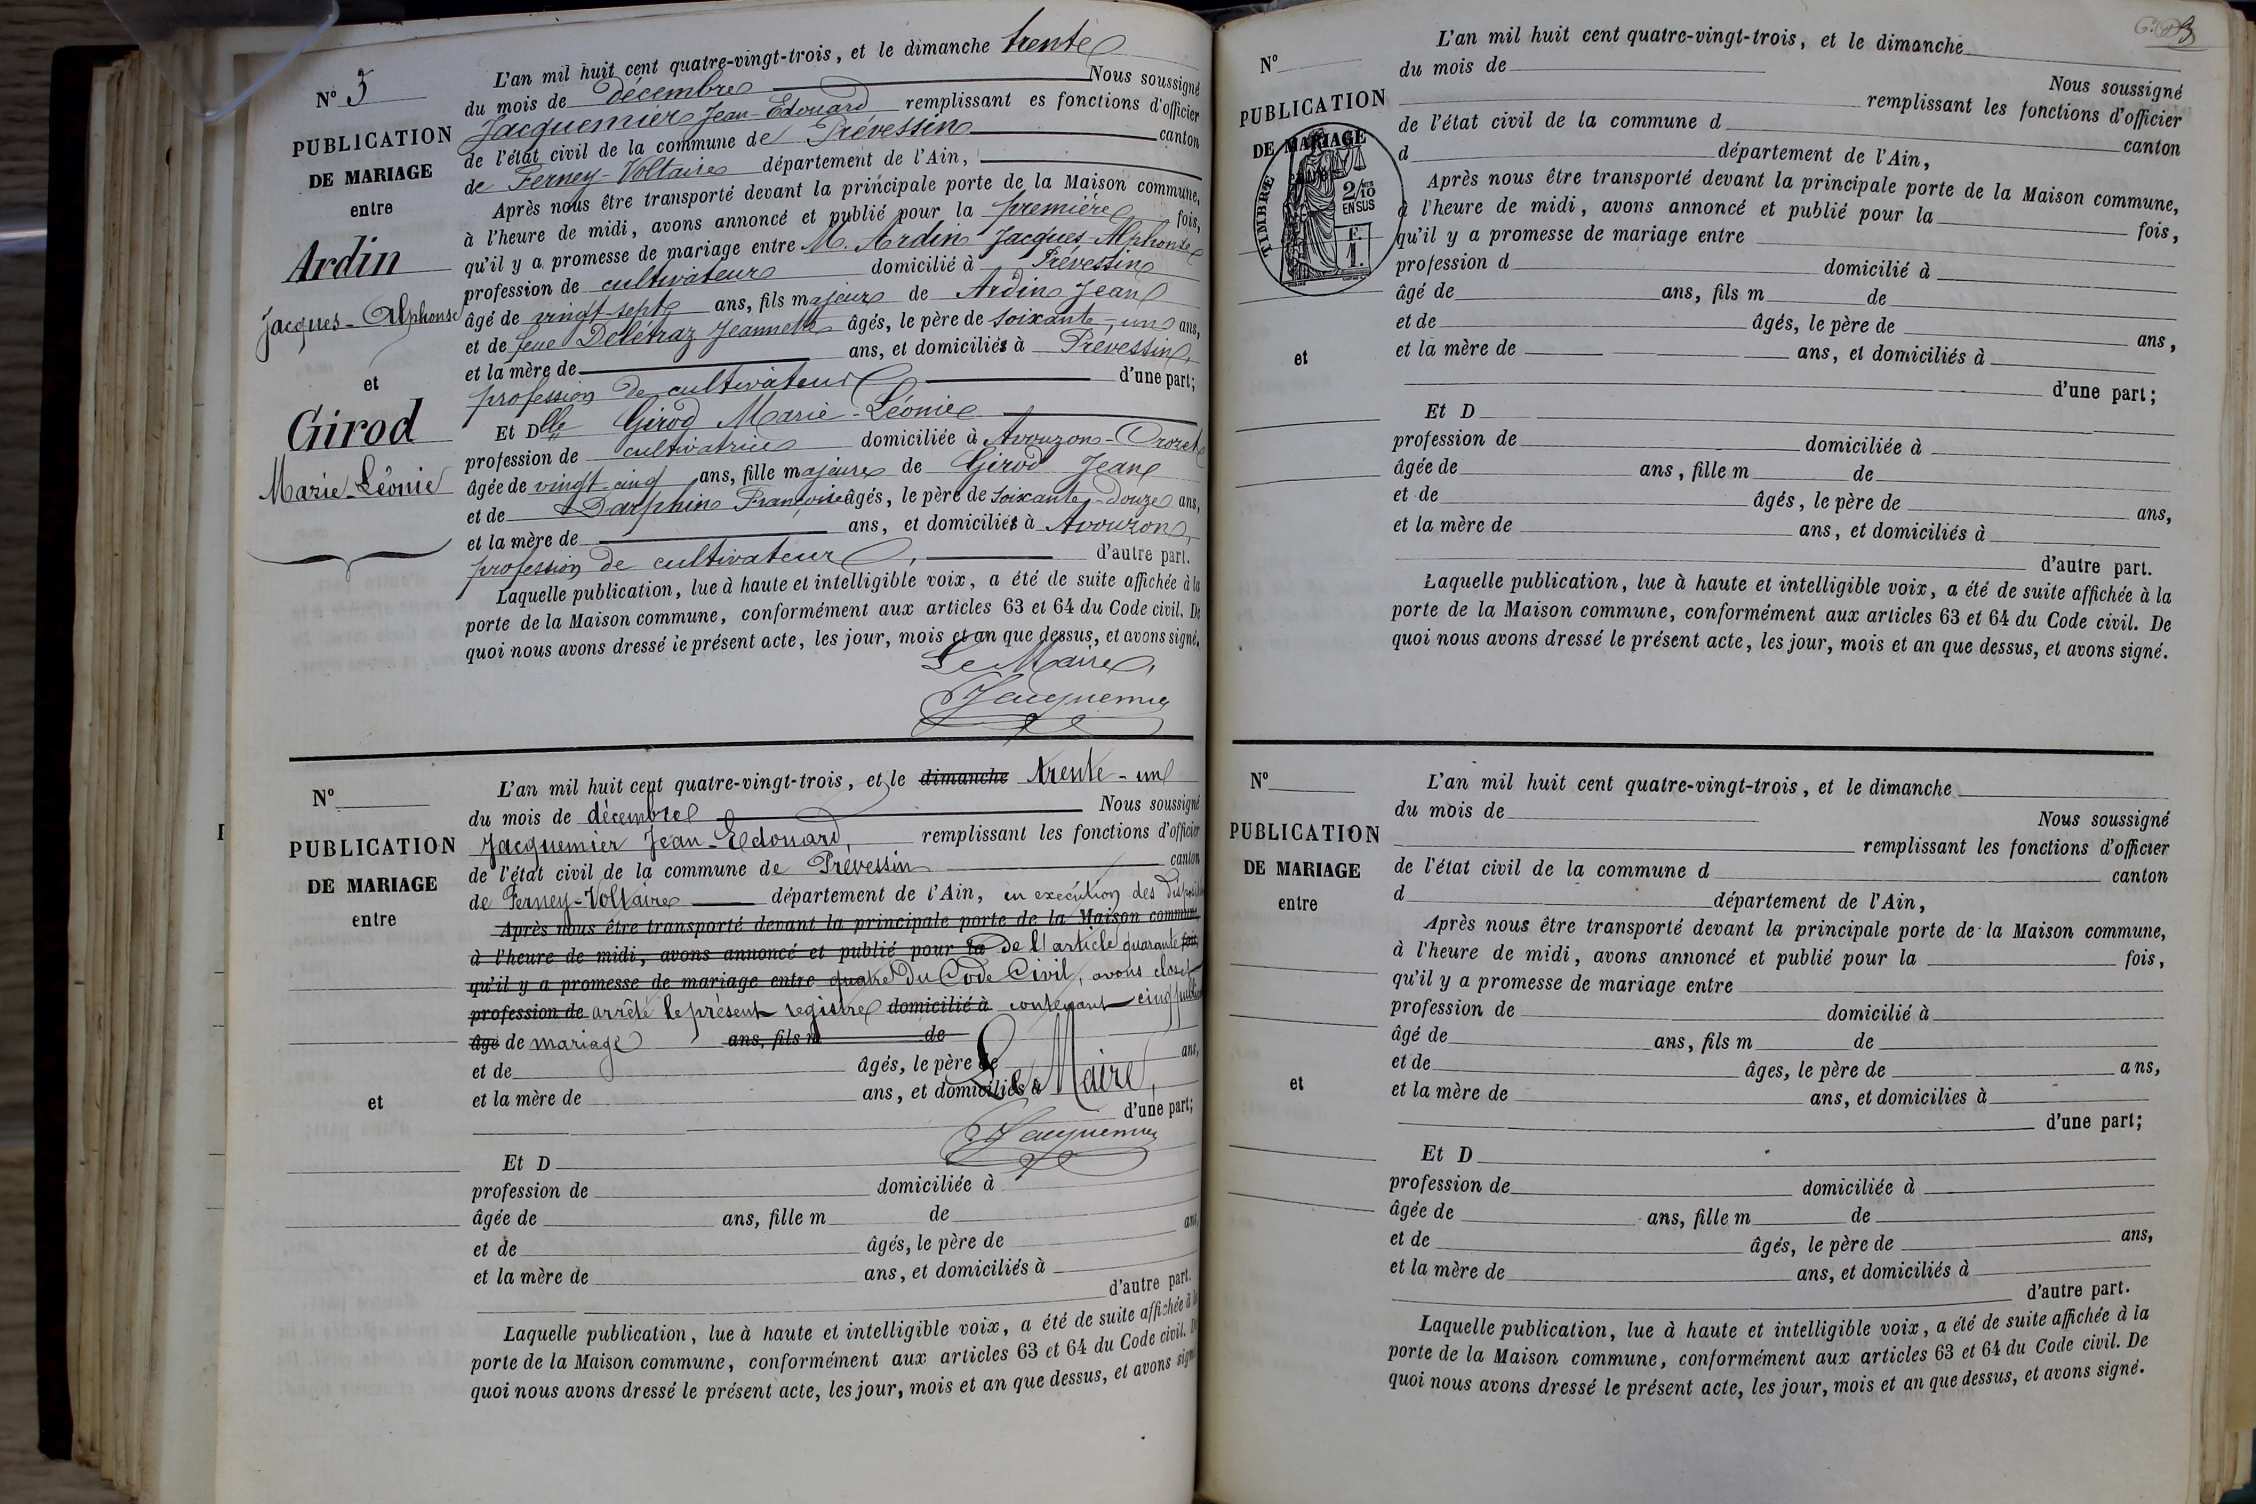 N° 5
PUBLICATION
DE MARIAGE
entre
Ardin
Jacques-Alphonse
et
Girod
Marie-Léonie
L'an mil huit cent quatre-vingt-trois, et le dimanche trente
du mois de décembre Nous soussigné
Jacquemier Jean-Edouard remplissant es fonctions d'officier
de l'état civil de la commune de Prévessin canton
de Ferney-Voltaire département de l'Ain,
Après nous être transporté devant la principale porte de la Maison commune,
à l'heure de midi, avons annoncé et publié pour la première fois,
qu'il y a promesse de mariage entre M. Ardin Jacques-Alphonse
profession de cultivateur domicilié à Prévessin
âgé de vingt-sept ans, fils majeur de Ardin Jean
et de feue Delétraz Jeannette âgés, le père de soixante-un ans,
et la mère de ans, et domiciliés à Prévessin,
profession de cultivateur d'une part;
Et Dlle Girod Marie-Léonie
profession de cultivatrice domiciliée à Avouzon-Crozet
âgée de vingt cinq ans, fille majeure de Girod Jean
et de Darphin Françoise âgés, le père de soixante-douze ans,
et la mère de ans, et domiciliés à Avouzon,
profession de cultivateur, d'autre part.
Laquelle publication, lue à haute et intelligible voix, a été de suite affichée à la
porte de la Maison commune, conformément aux articles 63 et 64 du Code civil. De
quoi nous avons dressé le présent acte, les jour, mois et an que dessus, et avons signé.
Le Maire,
Jacquemier
N°
PUBLICATION
DE MARIAGE
entre
et
L'an mil huit cent quatre-vingt-trois, et le dimanche trente-un
du mois de décembre Nous soussigné
Jacquemier Jean-Edouard, remplissant les fonctions d'officier
de l'état civil de la commune de Prévessin canton
de Ferney-Voltaire département de l'Ain, en exécution des
Après nous être transporté devant la principale porte de la Maison commune,
à l'heure de midi, avons annoncé et publié pour la de l'article quarante fois,
qu'il y a promesse de mariage entre quatre du Code Civil, avons clos et
profession de arrêté le présent registre domicilié à contenant cinq
âgé de mariage ans, fils m de
et de âgés, le père de ans,
et la mère de ans, et domiciliés à
Le Maire,
d'une part;
Jacquemier
Et D
profession de domiciliée à
âgée de ans, fille m de
et de âgés, le père de ans,
et la mère de ans, et domiciliés à
d'autre part.
Laquelle publication, lue à haute et intelligible voix, a été de suite affichée à la
porte de la Maison commune, conformément aux articles 63 et 64 du Code civil. De
quoi nous avons dressé le présent acte, les jour, mois et an que dessus, et avons signé
N°
PUBLICATION
DE MARIAGE
TIMBRE
2/10
EN SUS
F.
1.
et
L'an mil huit cent quatre-vingt-trois, et le dimanche
du mois de Nous soussigné
remplissant les fonctions d'officier
de l'état civil de la commune d canton
d département de l'Ain,
Après nous être transporté devant la principale porte de la Maison commune,
à l'heure de midi, avons annoncé et publié pour la fois,
qu'il y a promesse de mariage entre
profession d domicilié à
âgé de ans, fils m de
et de âgés, le père de ans,
et la mère de ans, et domiciliés à
d'une part;
Et D
profession de domiciliée à
âgée de ans, fille m de
et de âgés, le père de ans,
et la mère de ans, et domiciliés à
d'autre part.
Laquelle publication, lue à haute et intelligible voix, a été de suite affichée à la
porte de la Maison commune, conformément aux articles 63 et 64 du Code civil. De
quoi nous avons dressé le présent acte, les jour, mois et an que dessus, et avons signé.
N°
PUBLICATION
DE MARIAGE
entre
et
L'an mil huit cent quatre-vingt-trois, et le dimanche
du mois de Nous soussigné
remplissant les fonctions d'officier
de l'état civil de la commune d canton
d département de l'Ain,
Après nous être transporté devant la principale porte de la Maison commune,
à l'heure de midi, avons annoncé et publié pour la fois,
qu'il y a promesse de mariage entre
profession de domicilié à
âgé de ans, fils m de
et de âges, le père de ans,
et la mère de ans, et domicilies à
d'une part;
Et D
profession de domiciliée à
âgée de ans, fille m de
et de âgés, le père de ans,
et la mère de ans, et domiciliés à
d'autre part.
Laquelle publication, lue à haute et intelligible voix, a été de suite affichée à la
porte de la Maison commune, conformément aux articles 63 et 64 du Code civil. De
quoi nous avons dressé le présent acte, les jour, mois et an que dessus, et avons signé.